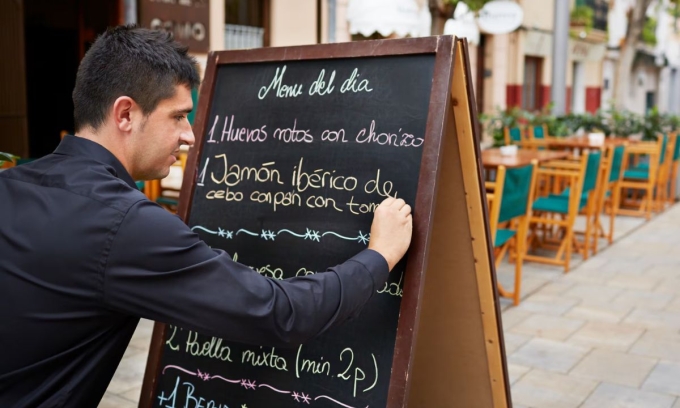 Menu del día
1 Huevos rotos con chorizo
1 Jamón ibérico de
cebo con pan con tom
2 Paella mixta (min. 2p)
+1 Be